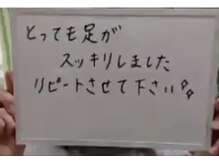 とっても足が
スッキリしました
リピートさせて下さい